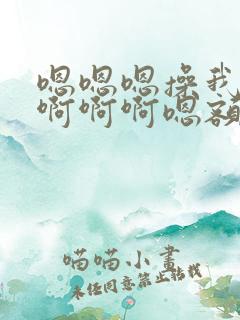 嗯嗯嗯操我
啊啊啊嗯额
喵喵小画
未经同意禁止转载